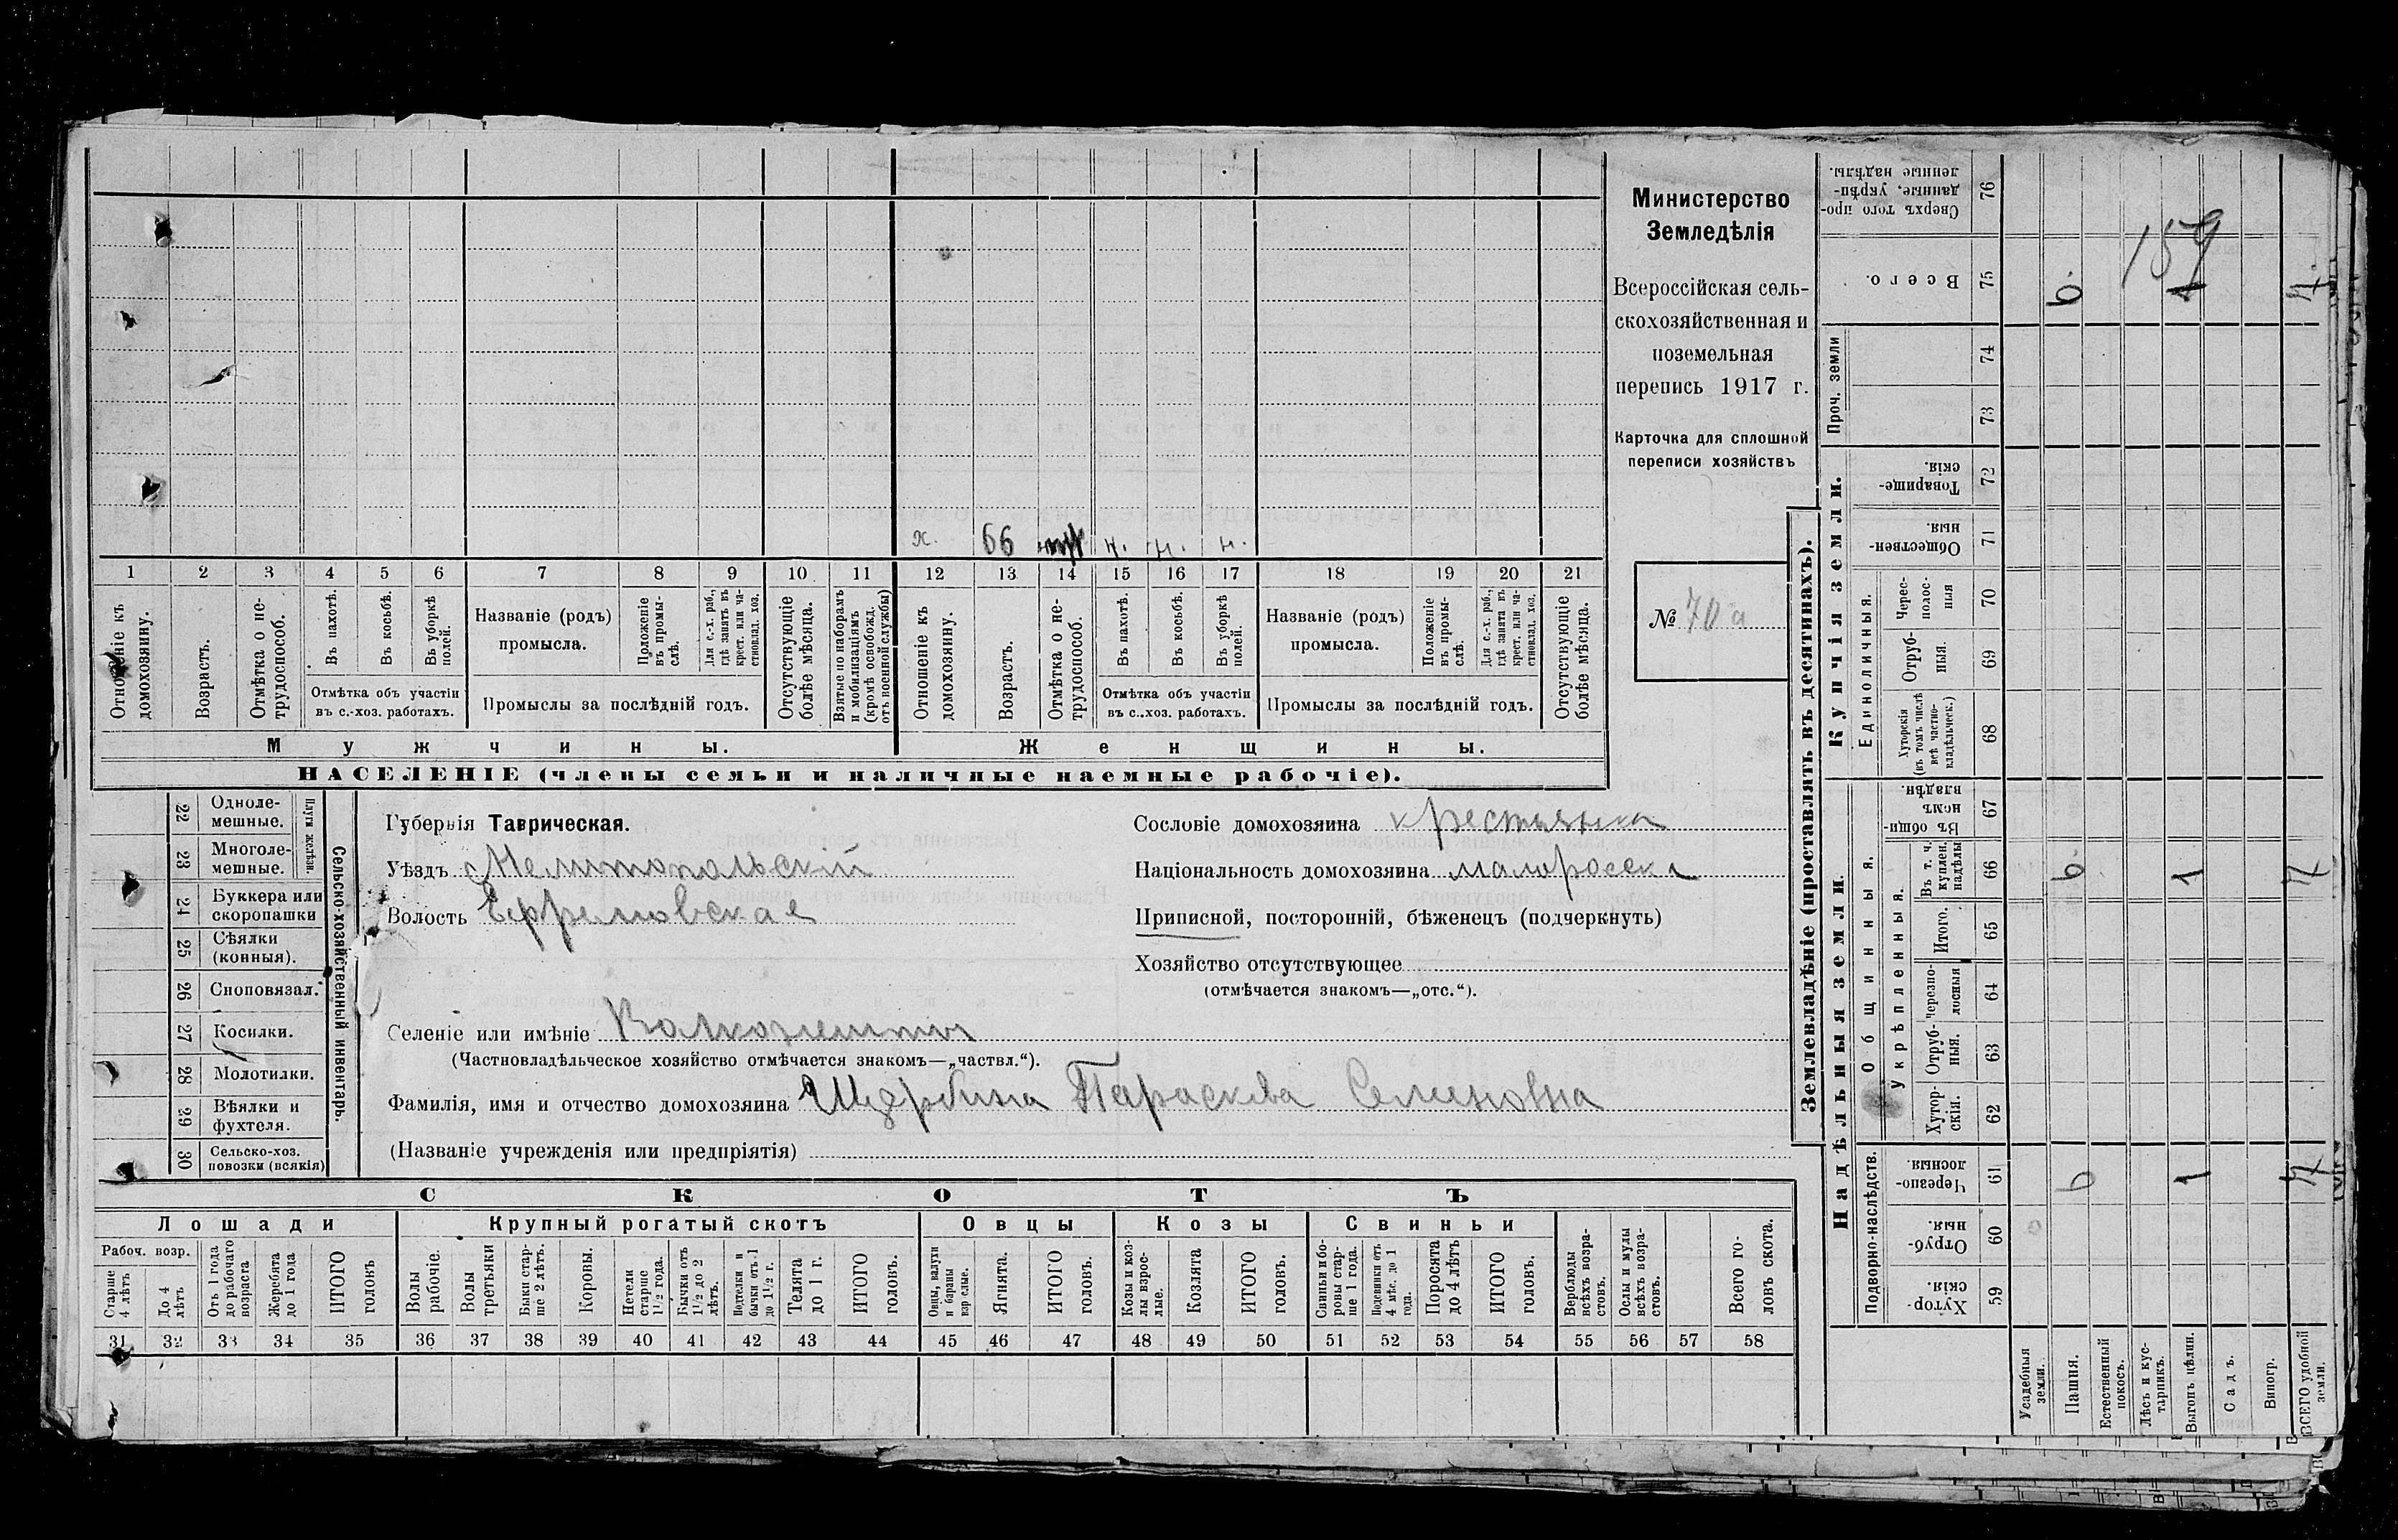 Министерство
Земледѣлія
Всероссійская сель-
скохозяйственная и
поземельная
перепись 1917 г.
Карточка для сплошной
переписи хозяйствъ
№ 70а
х. 66 н. н. н.
1 2 3 4 5 6 7 8 9 10 11 12 13 14 15 16 17 18 19 20 21
Отношеніе къ домохозяину.
Возрастъ.
Отмѣтка о не-
трудоспособ.
Въ пахотѣ.
Въ косьбѣ.
Въ уборкѣ полей.
Отмѣтка объ участіи
въ с.-хоз. работахъ.
Названіе (родъ)
промысла.
Положеніе въ промы-
слѣ.
Для с.-х. раб., гдѣ занятъ въ крест. или ча-
стновлад. хоз.
Промыслы за послѣдній годъ.
Отсутствующіе болѣе мѣсяца.
Взятые по наборамъ и мобилизаціямъ (кромѣ освобожд. отъ военной службы)
Отношеніе къ домохозяину.
Возрастъ.
Отмѣтка о не-
трудоспособ.
Въ пахотѣ.
Въ косьбѣ.
Въ уборкѣ полей.
Отмѣтка объ участіи
въ с.-хоз. работахъ.
Названіе (родъ)
промысла.
Положеніе въ промы-
слѣ.
Для с.-х. раб., гдѣ занятъ въ крест. или ча-
стновлад. хоз.
Промыслы за послѣдній годъ.
Отсутствующіе болѣе мѣсяца.
Мужчины. Женщины.
НАСЕЛЕНІЕ (члены семьи и наличные наемные рабочіе).
22 Одноле-
мешные.
23 Многоле-
мешные.
Плуги желѣзн.
24 Буккера или
скоропашки
25 Сѣялки
(конныя).
26 Сноповязал.
27 Косилки.
28 Молотилки.
29 Вѣялки и
фухтеля.
30 Сельско-хоз.
повозки (всякія)
Сельско-хозяйственный инвентарь.
Губернія Таврическая.
Уѣздъ Мелитопольскій
Волость Ефремовская
Селеніе или имѣніе
(Частновладѣльческое хозяйство отмѣчается знакомъ—„частвл.“).
Фамилія, имя и отчество домохозяина Щербина Параскева Семеновна
(Названіе учрежденія или предпріятія)
Сословіе домохозяина крестьянка
Національность домохозяина малоросска
Приписной, посторонній, бѣженецъ (подчеркнуть)
Хозяйство отсутствующее
(отмѣчается знакомъ—„отс.“).
СКОТЪ
Лошади Крупный рогатый скотъ Овцы Козы Свиньи
Рабоч. возр.
Старше 4 лѣтъ
До 4 лѣтъ
Отъ 1 года до рабочаго возраста
Жеребята до 1 года
ИТОГО головъ
Волы рабочіе.
Волы третьяки
Быки стар-
ше 2 лѣтъ.
Коровы.
Нетели старше 1½ года.
Бычки отъ 1½ до 2 лѣтъ.
Подтелки и бычки отъ 1 до 1½ г.
Телята до 1 г.
ИТОГО головъ.
Овцы, валухи и бараны взрослые.
Ягнята.
ИТОГО головъ.
Козы и коз-
лы взрос-
лые.
Козлята
ИТОГО головъ.
Свиньи и бо-
ровы стар-
ше 1 года.
Подсвинки отъ 4 мѣс. до 1 года.
Поросята до 4 лѣтъ
ИТОГО головъ.
Верблюды всѣхъ возра-
стовъ.
Ослы и мулы всѣхъ возра-
стовъ.
Всего го-
ловъ скота.
31 32 33 34 35 36 37 38 39 40 41 42 43 44 45 46 47 48 49 50 51 52 53 54 55 56 57 58
Землевладѣніе (проставлять въ десятинахъ).
Надѣльныя земли.
Купчія земли.
Проч. земли
Подворно-наслѣдств.
Общинныя.
Укрѣпленныя.
Единоличныя.
Сверхъ того про-
данные, укрѣп-
ленные надѣлы. 76
Всего. 75 6. 1 7.
159
74
73
Товарище-
скія. 72
Обществен-
ныя. 71
Черес-
полос-
ныя 70
Отруб-
ныя. 69
Хуторскія (въ томъ числѣ всѣ частно-
владѣльческ.) 68
Въ общин-
номъ владѣн. 67
Въ т. ч. куплен. надѣлы 66 6. 1 7
Итого. 65
Черезпо-
лосныя 64
Отруб-
ныя. 63
Хутор-
скія. 62
Черезпо-
лосныя. 61 6 1 7
Отруб-
ныя. 60
Хутор-
скія. 59
Усадебныя земли.
Пашня.
Естественный покосъ.
Лѣсъ и кус-
тарникъ.
Выгонъ цѣлин.
Садъ.
Виногр.
ВСЕГО удобной земли.